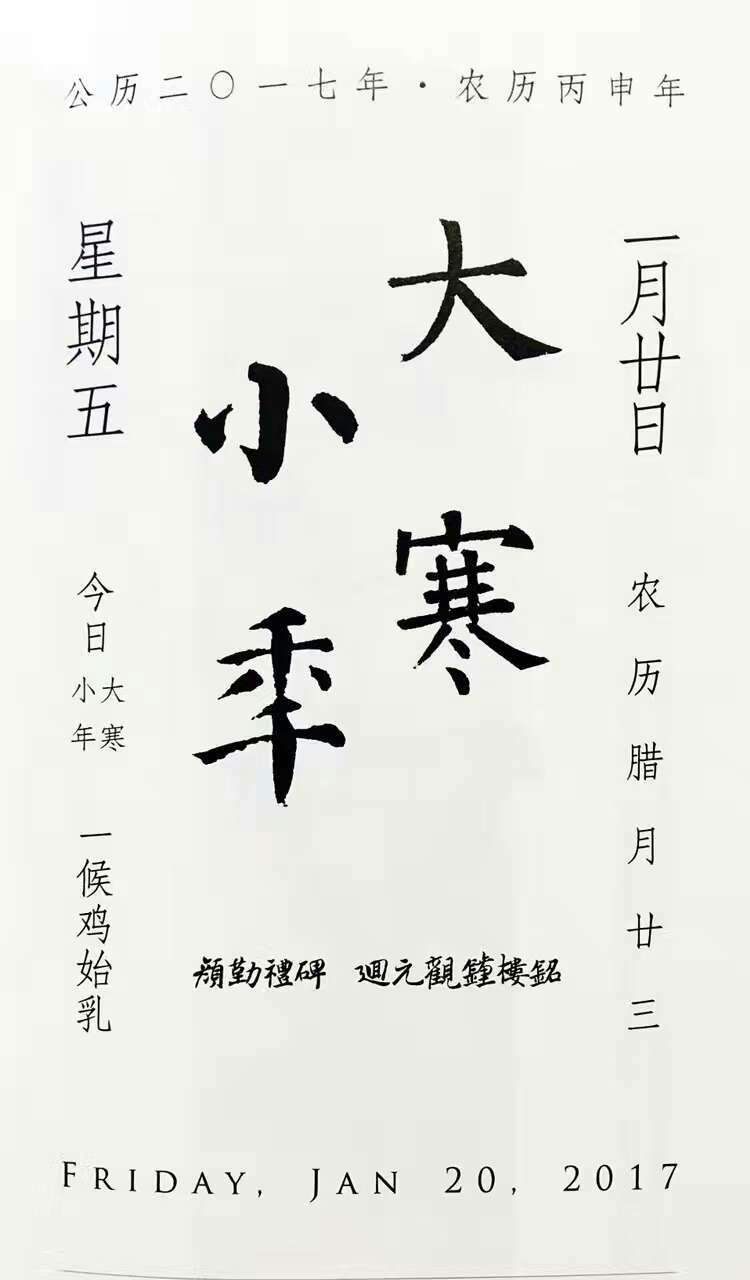 公历二〇一七年·农历丙申年
一月廿日
农历腊月廿三
大寒
小秊
星期五
今日
大寒
小年
一候鸡始乳
顔勤禮碑 迴元觀鐘樓銘
FRIDAY, JAN 20, 2017